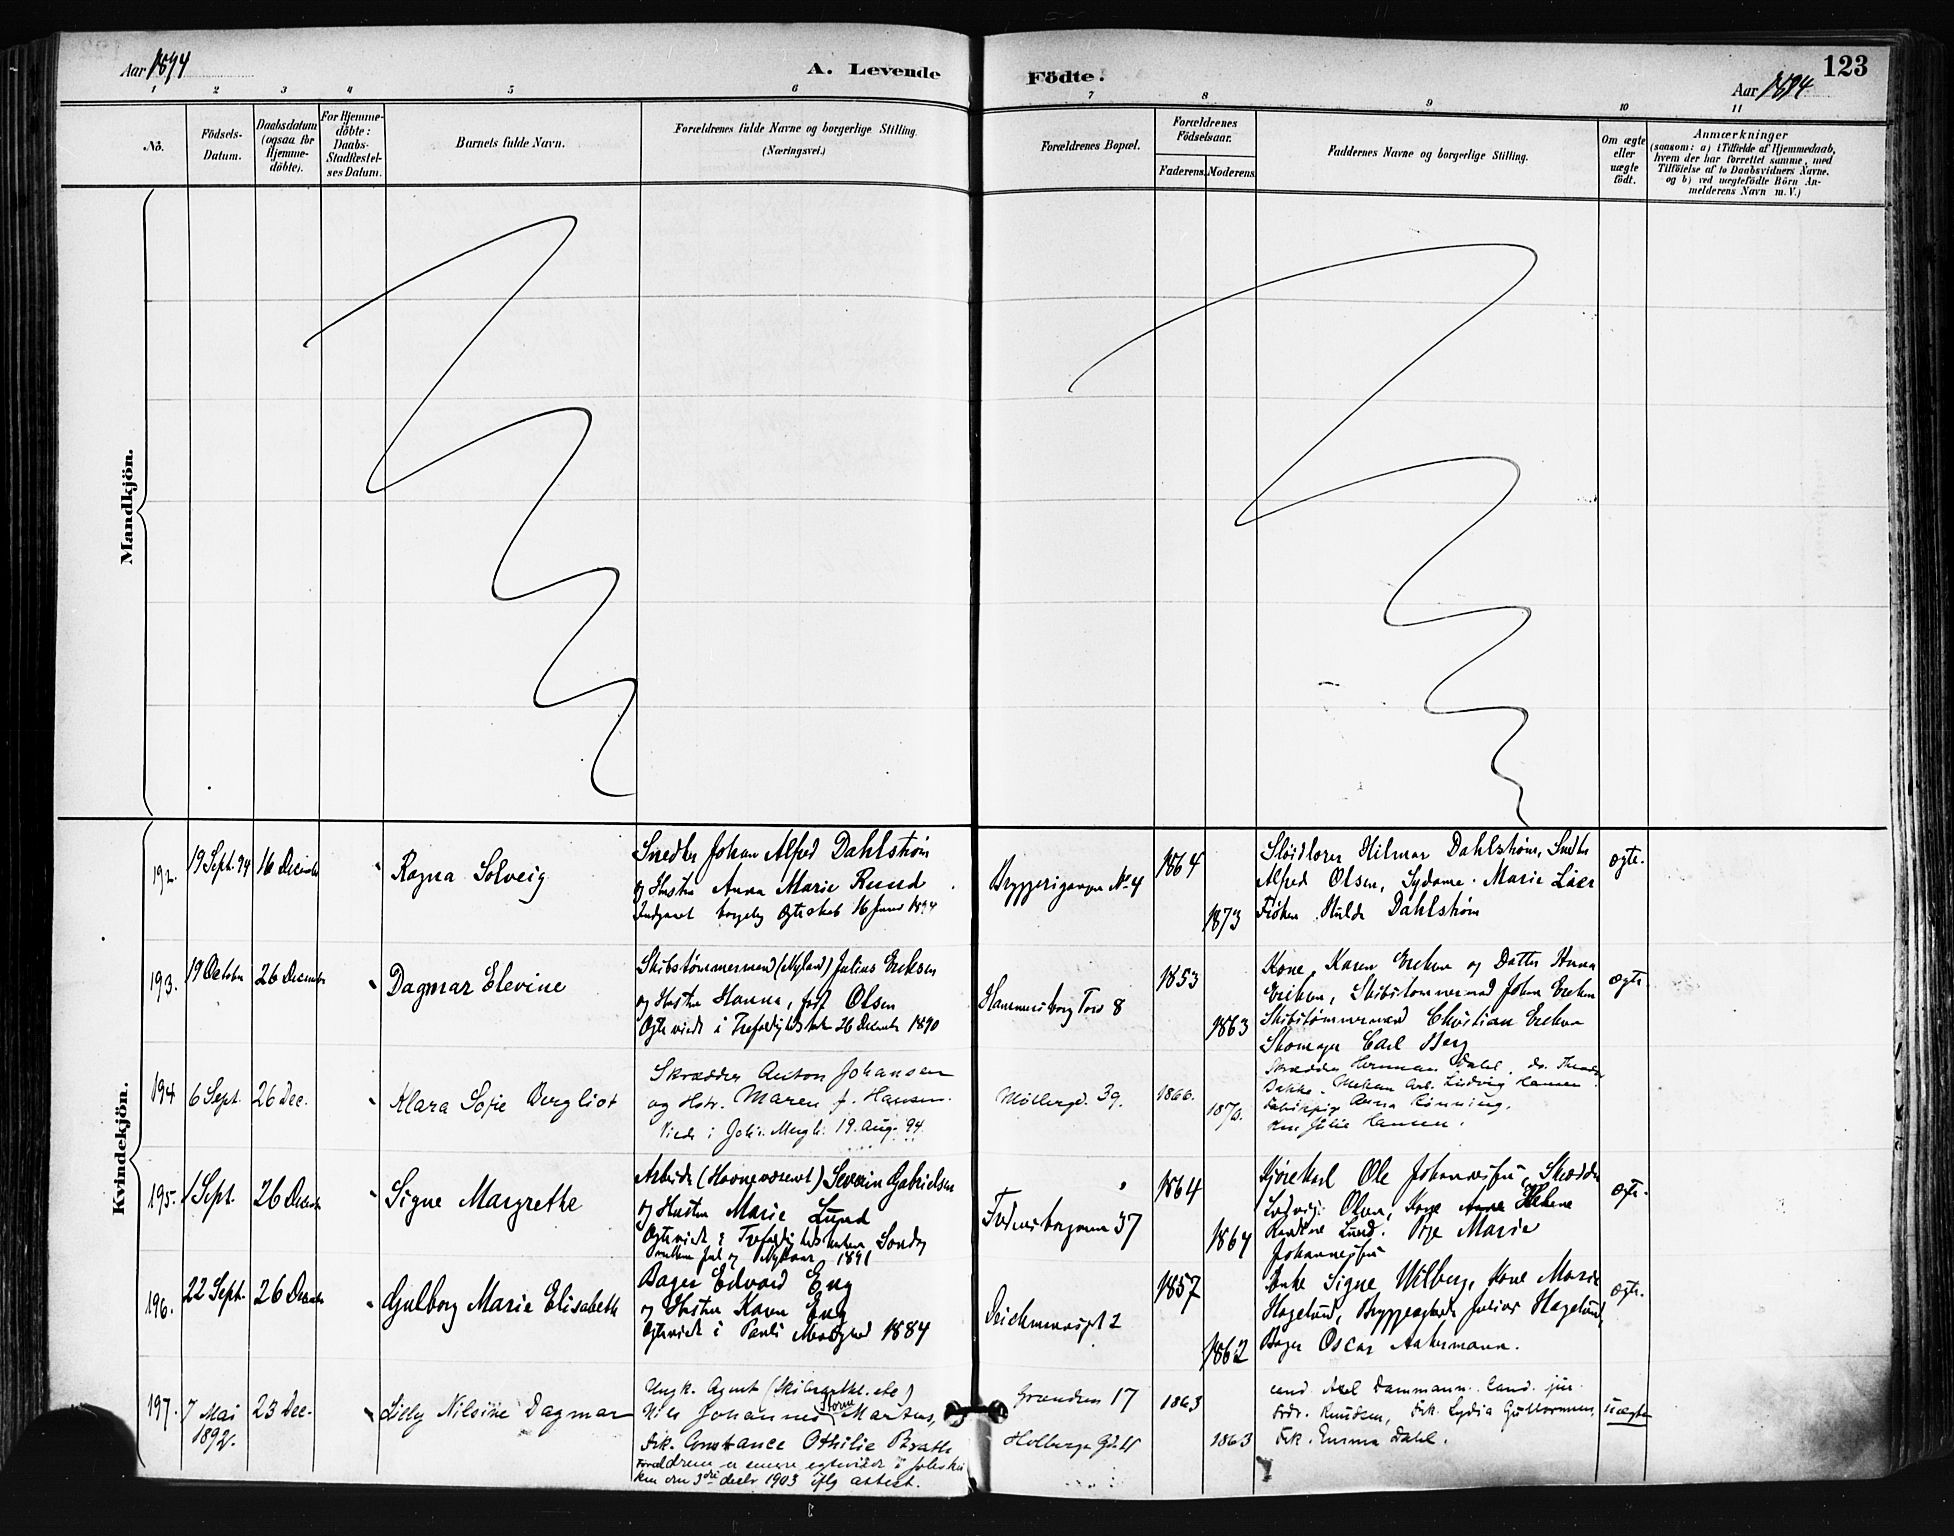 123
Aar 1894
A. Levende
Födte.
Aar 1894
1
2
3
4
5
6
7
8
9
10
11
No.
Födsels-
Datum.
Daabsdatum
(ogsaa for
Hjemme-
döbte).
For Hjemme-
döbte:
Daabs-
Stadfæstel-
ses Datum.
Barnets fulde Navn.
Forældrenes fulde Navne og borgerlige Stilling.
(Næringsvei.)
Forældrenes Bopæl.
Forældrenes
Födselsaar.
Faderens.
Moderens.
Faddernes Navne og borgerlige Stilling.
Om ægte
eller
uægte
födt.
Anmærkninger
(saasom: a) i Tilfælde af Hjemmedaab,
hvem der har forrettet samme, med
Tilföielse af to Daabsvidners Navne.
og b) ved uægtefödte Börn An-
melderens Navn m.V.)
Mandkjön.
Kvindekjön.
192.
19 Sept. 94
16 December
Ragna Solveig
Snedker Johan Alfred Dahlstrøm
og Hustru Anna Marie Rund
Indgaaet borgerlig Ægteskab 16 Juni 1894
Bryggerigangen No 4
1864
1873
Hilmar Dahlstrøm, Snedker
Alfred Olsen, Sydame Marie
Frøken Hulda Dahlstrøm
ægte.
193.
19 October
26 December
Dagmar Elevine
Skibstømmermand (Nyland) Julius Eriksen
og Hustru Hanna, født Olsen
Ægteviede i Trefoldighedskirken 26 December 1890
Hammersborg Torv 8
1853
1863
Kone Karen Eriksen og Datter Anna
Eriksen, Skibstømmermand Johan Eriksen
Skibstømmermand Christian Eriksen
Skomager Carl Berg
ægte
194
6 Sept.
26 Dec.
Klara Sofie Bergliot
Skrædder Anton Johansen
og Hstr. Maren f. Hansen.
Viede i Joh. Mgh. 19. Aug. 94
Møllergd. 39.
1866.
1870.
Skrædder Herman Dahl, do.
Bakke, Ludvig Hansen
Anna Rønning,
Julie Hansen.
195.
1 Sept.
26 December
Signe Margrethe
Arbeider (Havnevæsenet) Severin Gabrielsen
og Hustru Marie Lund
Ægteviede i Trefoldighedskirken Søndag
mellem Jul og Nytaar 1891
Fredensborgveien 37
1864
1864
Kjørekarl Ole Johannessen, Skrædder
Ludvig Olsen, Kone Anna Helene
Lund. Pige Marie
Johannessen
ægte.
196.
22 Sept.
26 December
Gulborg Marie Elisabeth
Bager Edvard Eng
og Hustru Karen Eng
Ægteviede i Pauli Menighed 1884
Deichmansgt 2
1857
1862
Enke Signe Wilberg, Kone Marie
Hagelund, Bryggearbeider Julius Hagelund,
Bager Oscar Ankermann.
ægte.
197.
7 Mai
1892.
23 Dec.
Lilly Nilsine Dagmar
Ungk. Agent
Nils Johannes Storm Martens,
Frk. Constance Othilie Brath
Forældrene er senere egteviede i Joles kir
ken den 3die decbr 1903 iflg attest.
Grændsen 17
Holbergs Gd.
1863
1863
cand. Axel Dammann. cand. jur.
Fdr. Knudsen, Frk. Lydia Guttormsen,
Frk. Emma Dahl.
uægte